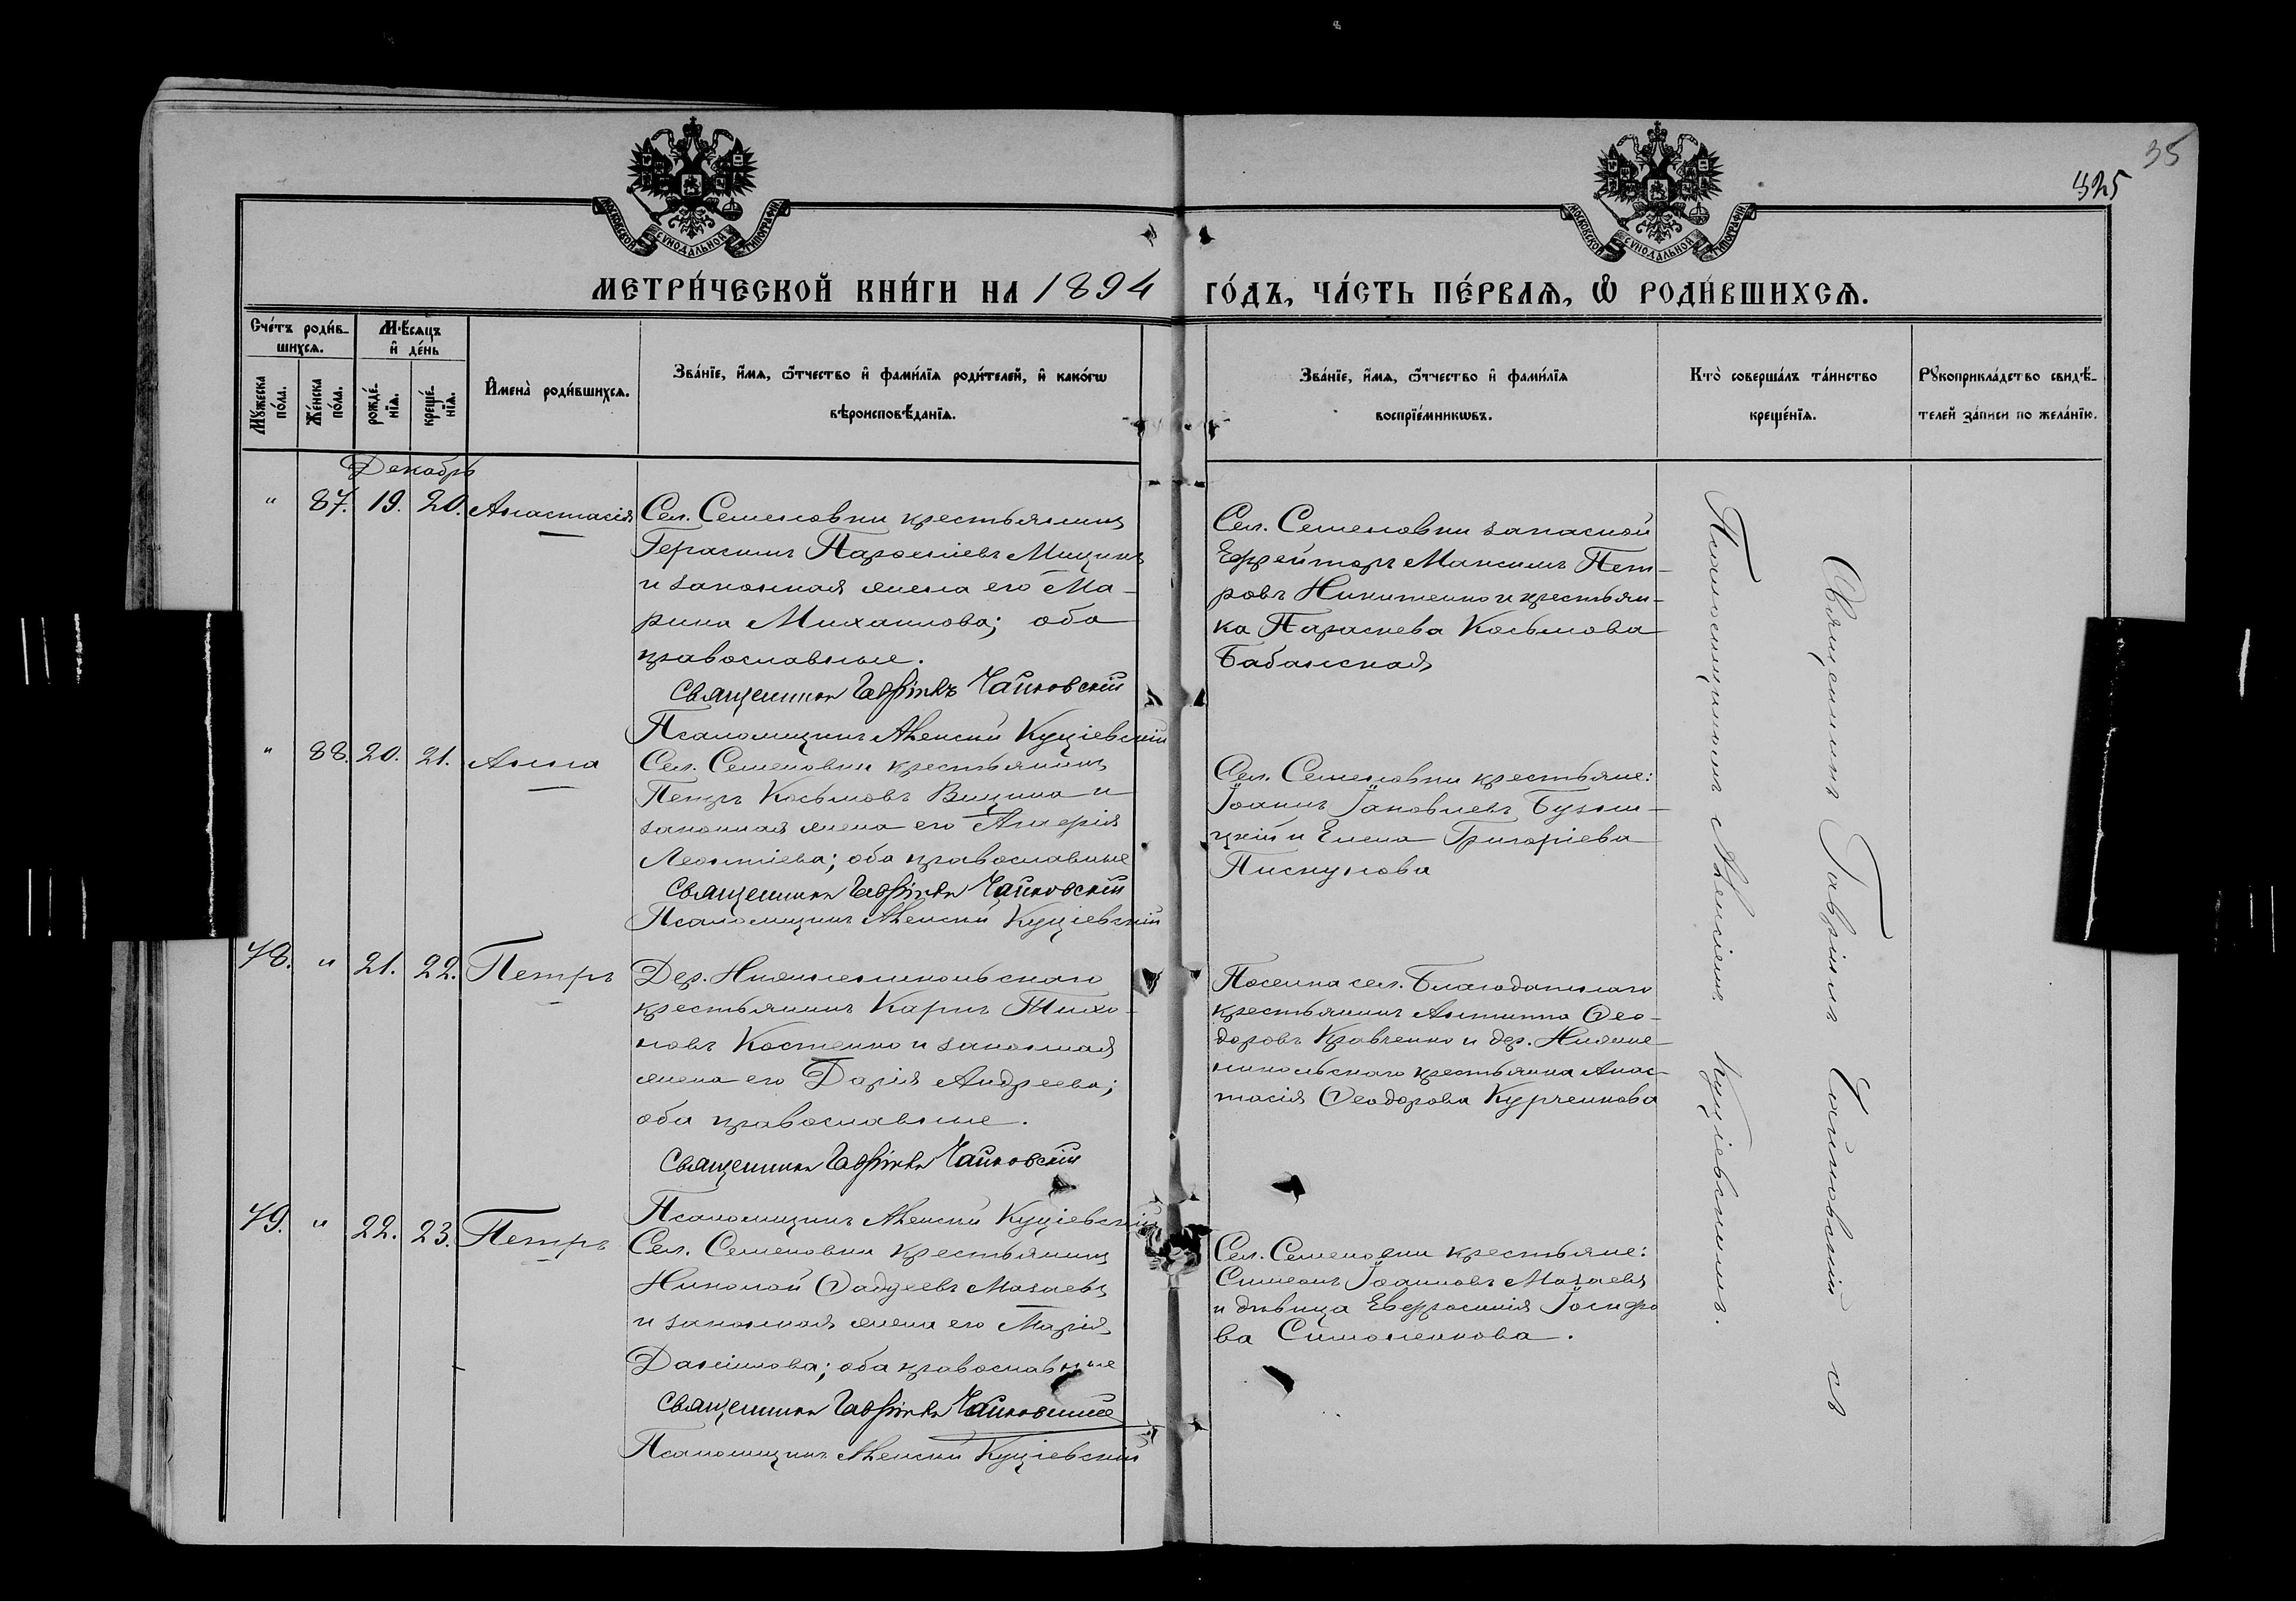 35
325
МОСКОВСКОЙ СѴНОДАЛЬНОЙ ТИПОГРАФІИ
МОСКОВСКОЙ СѴНОДАЛЬНОЙ ТИПОГРАФІИ
МЕТРИ́ЧЕСКОЙ КНИ́ГИ НА 1894 ГО́ДЪ, ЧА́СТЬ ПЕ́РВАѦ, Ѽ РОДИ́ВШИХСѦ.
Сче́тъ роди́в-
шихсѧ.
Мꙋ́жеска по́ла.
Же́нска по́ла.
Мѣ́сѧцъ
и҆ де́нь
рожде́-
нїѧ.
креще́-
нїѧ.
И҆мена̀ роди́вшихсѧ.
Зва́нїе, и҆́мѧ, ѻ҆́тчество и҆ фами́лїѧ роди́телей, и҆ како́гѡ
вѣроисповѣ́данїѧ.
Зва́нїе, и҆́мѧ, ѻ҆́тчество и҆ фами́лїѧ
воспрїе́мникѡвъ.
Кто̀ соверша́лъ та́инство
креще́нїѧ.
Рꙋкоприкла́дство свидѣ́-
телей за́писи по жела́нїю.
Декабрь
" 87. 19. 20. Анастасія
Сел. Семеновки крестьянинъ
Герасимъ Парѳеніевъ Мицикъ
и законная жена его Ма-
рина Михаилова; оба
православные.
Священникъ Гавріилъ Чайковскій
Псаломщикъ Алексій Куціевскій
Сел. Семеновки запасной
Ефрейторъ Максимъ Пет-
ровъ Никитенко и крестьян-
ка Параскева Косьмова
Бабанская
" 88. 20. 21. Анна
Сел. Семеновки крестьянинъ
Петръ Косьмовъ Вицина и
законная жена его Агафія
Леонтіева; оба православные
Священникъ Гавріилъ Чайковскій
Псаломщикъ Алексій Куціевскій
Сел. Семеновки крестьяне:
Іоаннъ Іаковлевъ Бузни-
цкій и Елена Григоріева
Пискунова
78. " 21. 22. Петръ
Дер. Нижненикольскаго
крестьянинъ Карпъ Тихо-
новъ Костенко и законная
жена его Дарія Андреева;
оба православные.
Священникъ Гавріилъ Чайковскій
Псаломщикъ Алексій Куціевскій
Поселка сел. Благодатнаго
крестьянинъ Антипа Ѳео-
доровъ Кравченко и дер. Нижне-
никольскаго крестьянка Анас-
тасія Ѳеодорова Курченкова
79. " 22. 23. Петръ
Сел. Семеновки крестьянинъ
Николай Ѳадуеевъ Мазаевъ
и законная жена его Марія
Даніилова; оба православные
Священникъ Гавріилъ Чайковскій
Псаломщикъ Алексій Куціевскій
Сел. Семеновки крестьяне:
Симеонъ Іоанновъ Мазаевъ
и дѣвица Евфросинія Іосифо
ва Симоненкова.
Священникъ Гавріилъ Чайковскій съ
Псаломщикомъ Алексіемъ Куціевскимъ.